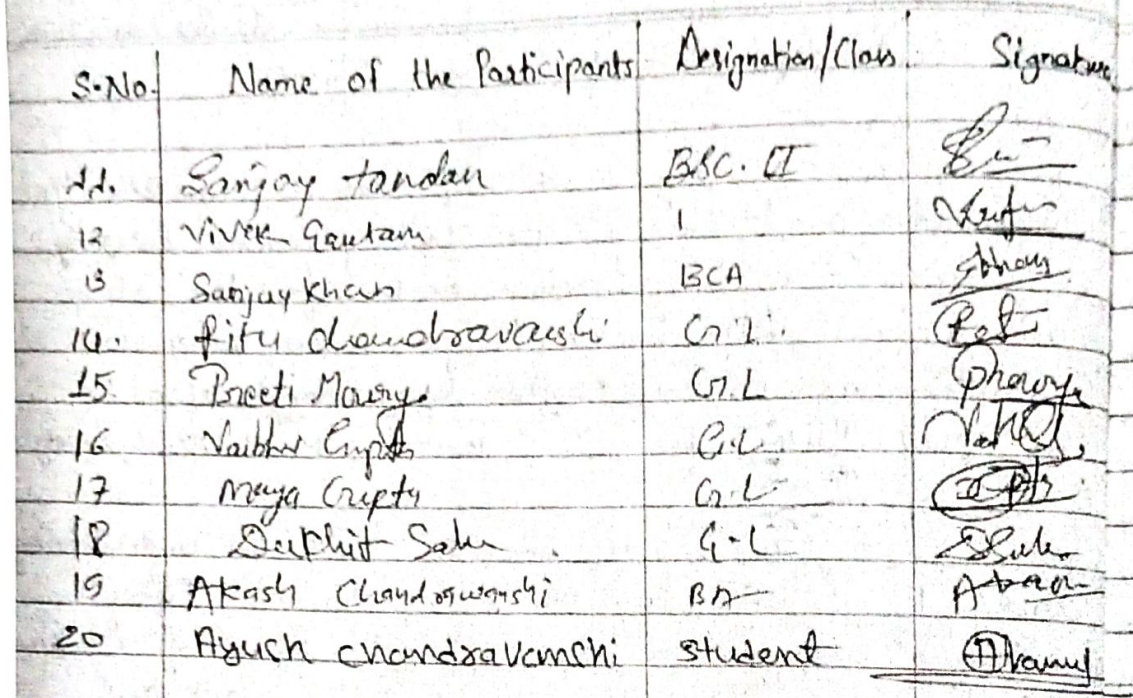 S.No. Name of the Participants Designation/Class Signature
11. Sanjay tandan BSC. II
12 Vivek Gautam 1
13 Sanjay Khan BCA
14. Ritu chandravanshi G.L.
15 Preeti Maurya G.L
16 Vaibhav Gupta G.L.
17 Maya Gupta G.L
18 Sahu G.L
19 Akash Chandrawanshi BA
20 Ayush chandravanshi student